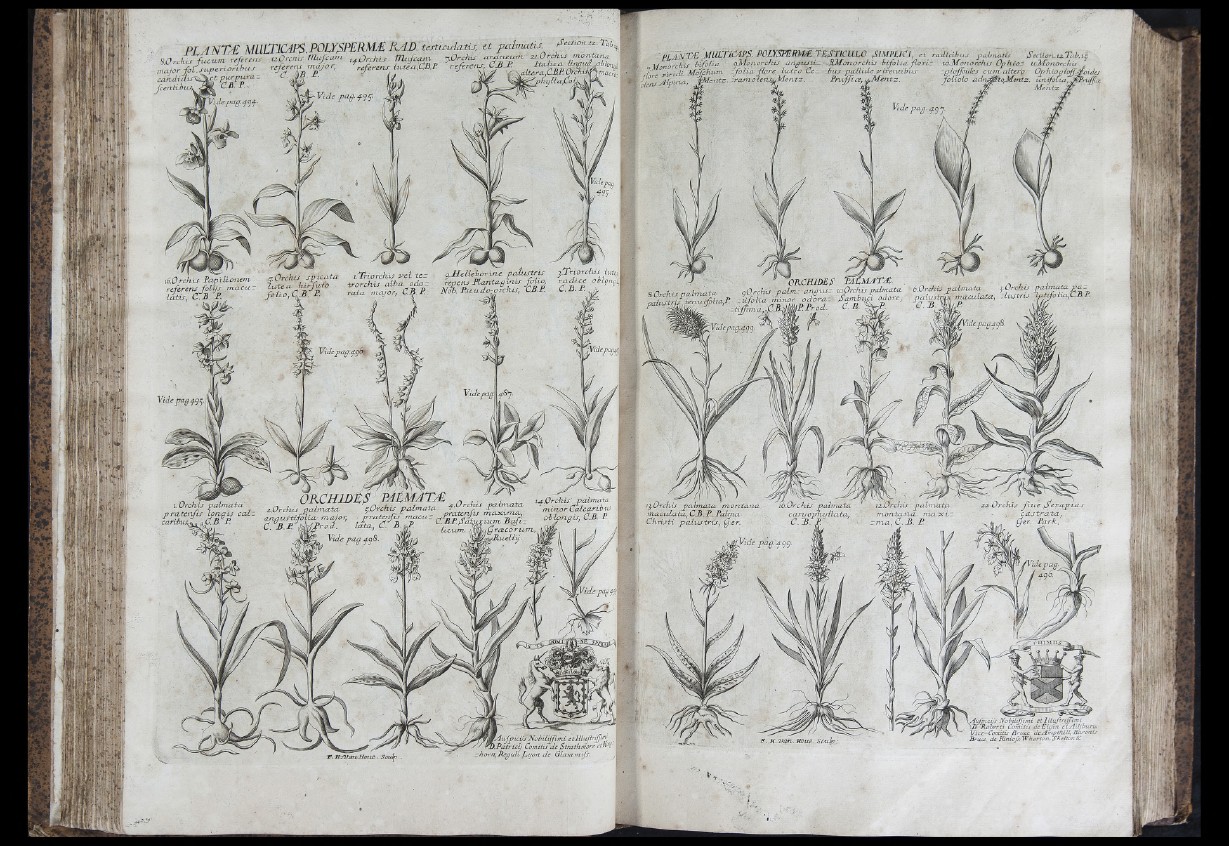 PLANTÆ MULTICAPS. POLYSPERMÆ RAD. testiculatis, et palmatis. Sectio.12. Tab.
8 Orchis fucum referens
major fol. superioribus
candidis et purpura-
scentibus, C.B.P.
Vide pag. 494.
12 Orchis Muscam
referens major,
C.B.P.
Vide pag. 495.
14 Orchis Muscam
referens lutea, C.B.P.
7 Orchis araneum
referens, C.B.P.
Orchis montana
Italica
altera, C.B.P.
Vide pag.
495
16 Orchis Papilionem
referens foliis macu-
latis, C.B.P.
Vide pag. 495
Orchis spicata
lutea hirsuto
folio, C.B.P.
Vide pag. 496.
1 Triorchis vel te-
trorchis alba odo-
rata major, C.B.P.
9 Helleborine palustris
repens Plantaginis folio
Nob. Pseudo-orchis, C.B.P.
Vide pag. 487.
Triorchis lutea
radice oblonga
C.B.P.
Vide pag.
ORCHIDES PALMATÆ
1 Orchis palmata
pratensis longis cal-
caribus, C.B.P.
2 Orchis palmata
angustifolia major,
C.B.P. Prod.
Vide pag. 498.
3 Orchis palmata
pratensis macu-
lata, C.B.P.
4 Orchis palmata
pratensis maxima,
C.B.P. Satyrium Basi-
licum Græcorum,
Ruellij
14 Orchis palmata
minor Calcaribus
oblongis, C.B.P.
Vide pag.
Auspiciis Nobilissimi et Illustrissimi
D. Patricij Comitis de Strathmore et
horn, Reguli Lyon de Glammiss.
F. H. Van. Houe. Sculp:
PLANTÆ MULTICAPS. POLYSPERMÆ TESTICULO SIMPLICI, et radicibus palmatis Sectio.12. Tab.15
Monorchis bifolia
flore viridi Moschum
olens Alpina, Mentz.
Monorchis angusti-
folia flore luteo
Mentz.
Monorchis bifolia, flori-
bus pallide virentibus
Prussica, Mentz.
Vide pag. 497.
10 Monorchis Ophio-
glossoides cum altero
foliolo adnato, Mentz.
11 Monorchis
Ophioglossoides
unifolia, Pruss.
Mentz.
ORCHIDES PALMATÆ
8 Orchis palmata
palustris tenuifolia, P.
Vide pag. 499.
9 Orchis palm. angus-
tifolia minor odora-
tissima, C.B.P. Prod.
Orchis palmata
Sambuci odore,
C.B.P.
6 Orchis palmata
palustris maculata,
C.B.P.
Vide pag. 498.
5 Orchis palmata pa-
lustris latifolia, C.B.P.
13 Orchis palmata montana
maculata, C.B.P. Palma
Christi palustris, Ger.
Vide pag. 499.
16 Orchis palmata
caryophyllata,
C.B.P.
12 Orchis palmata
montana maxi-
ma, C.B.P.
22 Orchis sive Serapias
castrata,
Ger. Park.
Vide pag.
490.
FUIMUS
Auspiciis Nobilissimi et Illustrissimi
D. Roberti Comitis de Elgin et Ailsbury
Vice-Comitis Bruce de Ampthill, Baronis
Bruce de Kinloss Whorlton, Skelton &c.
F. H. Van. Houe. Sculp: